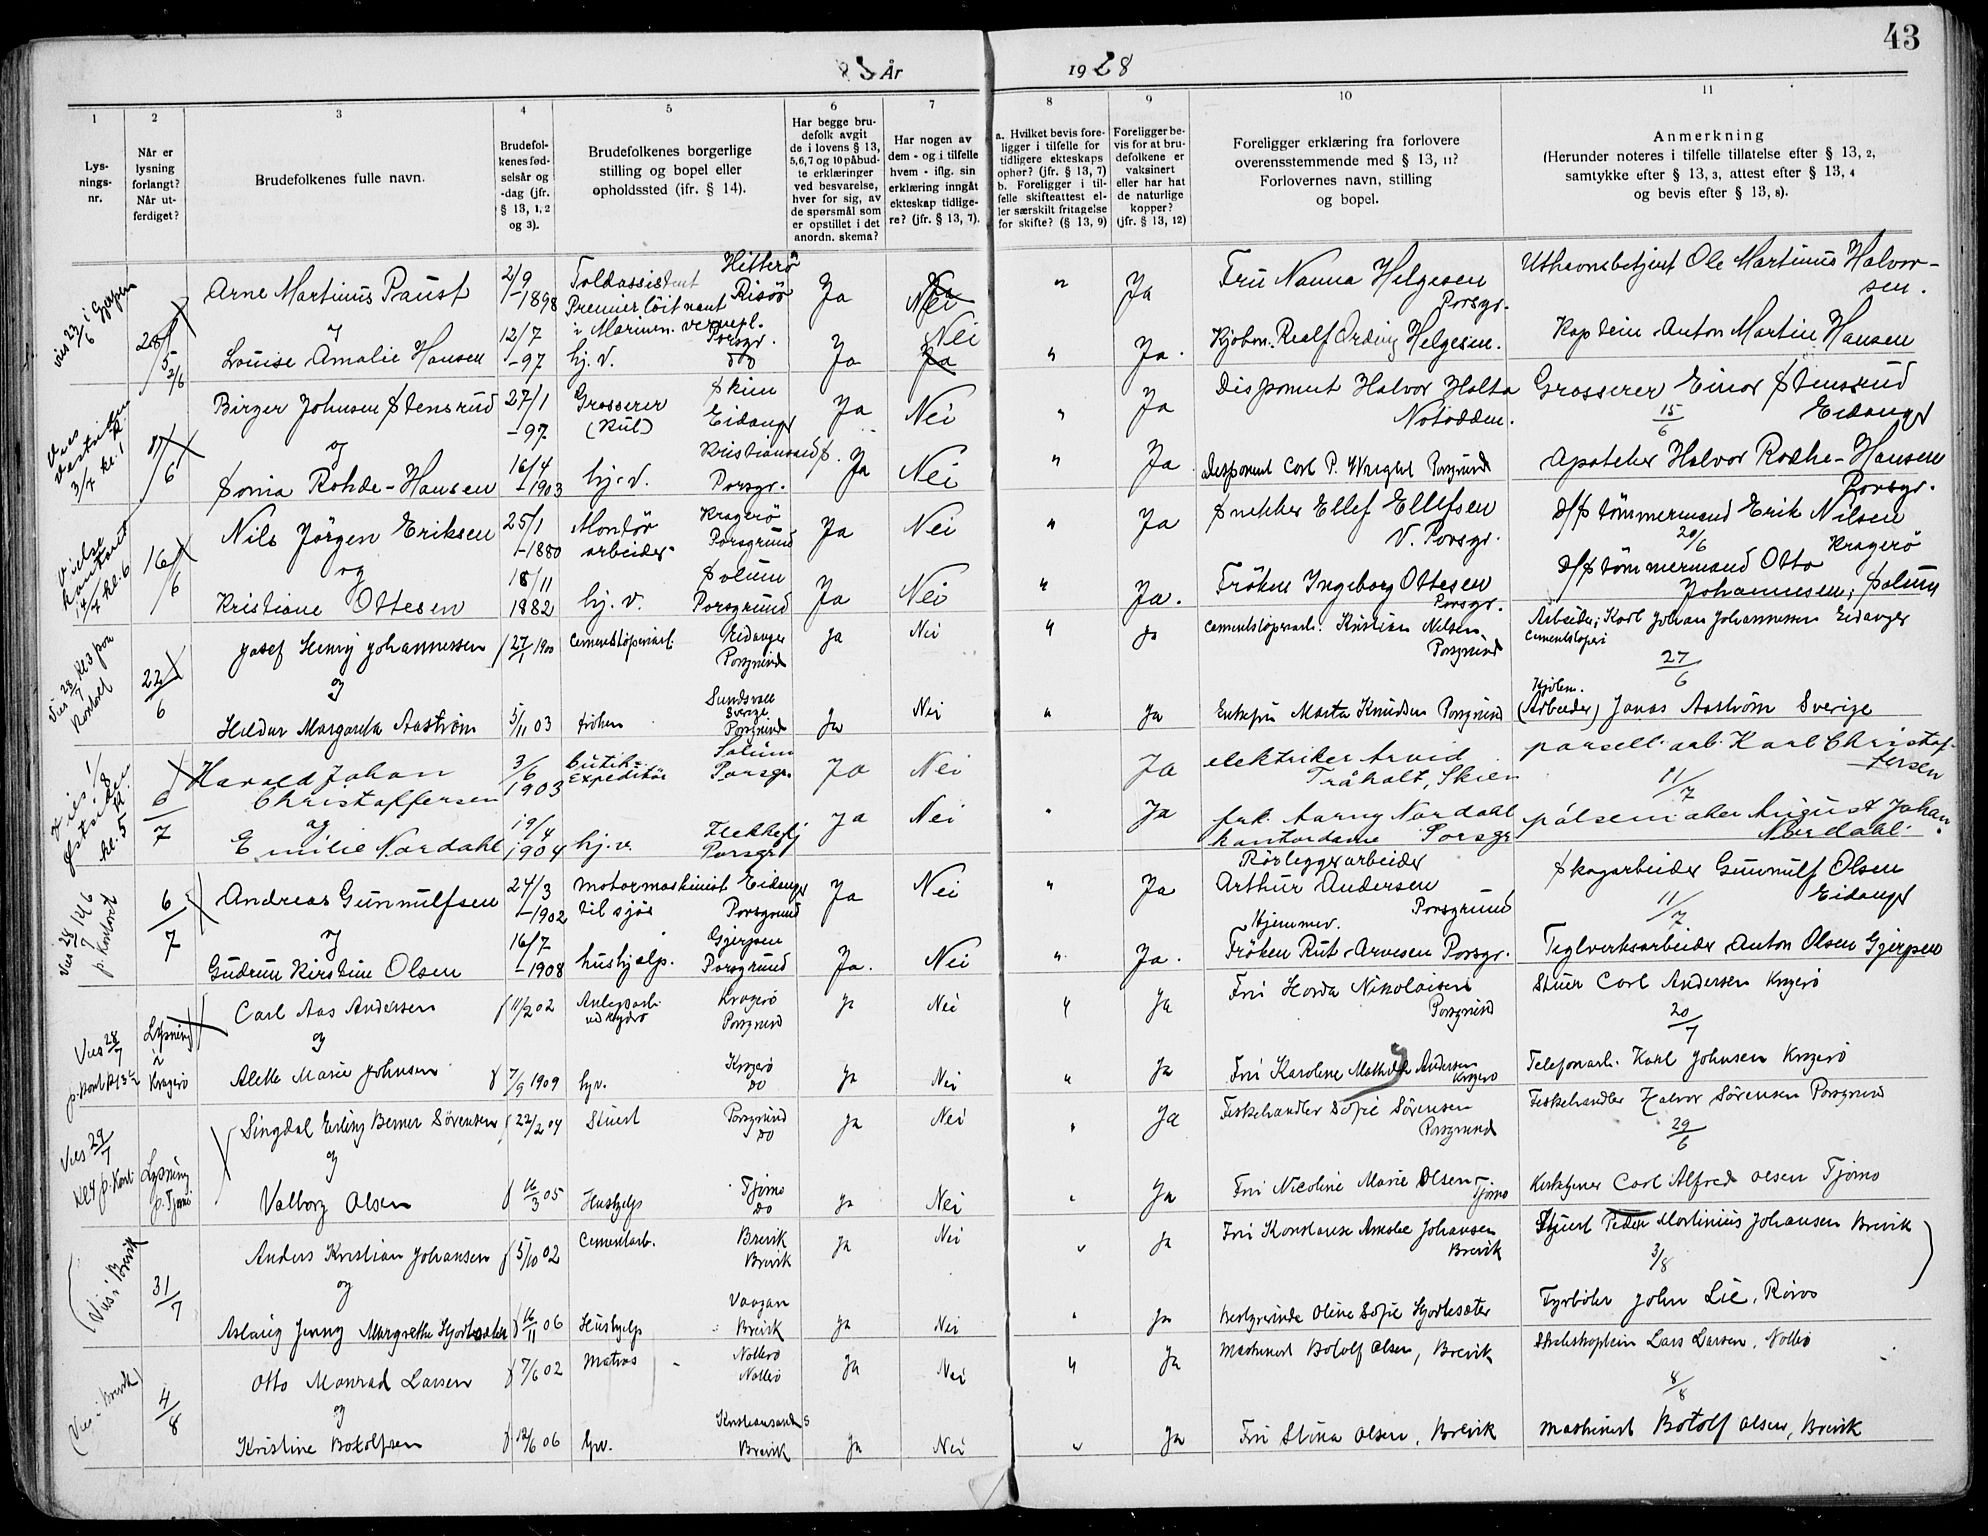 43
År 1928
1 2 3 4 5 6 7 8 9 10 11
Lys-
nings-
nr.
Når er
lysning
forlangt?
Når ut-
ferdiget?
Brudefolkenes fulle navn.
Brudefol-
kenes fød-
selsår og
-dag (jfr.
§ 13, 1, 2
og 3).
Brudefolkenes borgerlige
stilling og bopel eller
opholdssted (jfr. § 14).
Har begge bru-
defolk avgit
de i lovens § 13,
5,6,7 og 10 påbud-
te erklæringer
ved besvarelse,
hver for sig, av
de spørsmål som
er opstillet i det
anordn. skema?
Har nogen av
dem - og i tilfelle
hvem - iflg. sin
erklæring inngått
ekteskap tidlige-
re? (jfr. § 13, 7).
a. Hvilket bevis fore-
ligger i tilfelle for
tidligere ekteskaps
ophør? (jfr. § 13, 7)
b. Foreligger i til-
felle skifteattest el-
ler særskilt fritagelse
for skifte? (§ 13, 9)
Foreligger be-
vis for at bru-
defolkene er
vaksinert
eller har hat
de naturlige
kopper?
(jfr. § 13, 12)
Foreligger erklæring fra forlovere
overensstemmende med § 13, 11?
Forlovernes navn, stilling
og bopel.
Anmerkning
(Herunder noteres i tilfelle tillatelse efter § 13, 2,
samtykke efter § 13, 3, attest efter § 13, 4
og bevis efter § 13, 8).
Vies 23/6 i Gjerpen
28/5 2/6
Arne Martinus Paust 2/9 -1898 Toldassistent Hitterø
Premierløitnant Risør Ja Nei " Ja Fru Nanna Helgesen Porsgr. Uthavnsbetjent Ole Martinus Halvor-
sen.
i Marinen. vernepl. Porsgr.
og
Louise Amalie Hansen 12/7 -97 hj. v. do Ja Nei Ja " Ja. Kjøbm. Realf Ording Helgesen. Kaptein Anton Martin Hansen
Vies Vestsiden K. 3/7 kl. 1
11/6
Birger Johnsen Stensrud 27/1 -97 Grosserer Skien
(Kul) Eidanger Ja Nei " Ja Disponent Halvor Holta Notodden. Grosserer Einar Stensrud
15/6 Eidanger
og
Sonia Rohde-Hansen 16/4 -1903 hj. v. Kristiansand S. Porsgr. Ja Nei " Ja Disponent Carl P. Wright Porsgrund Apoteker Halvor Rohde-Hansen
Porsgr.
Vielse kontoret 14/7 kl. 6
16/6
Nils Jörgen Eriksen 25/1 -1880 Montør Kragerø
arbeider Porsgrund Ja Nei " Ja Snekker Ellef Ellefsen V. Porsgr. D/S tömmermand Erik Nilsen
20/6 Kragerø
og
Kristiane Ottesen 18/11 1882 hj. v. Solum Porsgrund Ja Nei " Ja. Fröken Ingeborg Ottesen Porsgr. D/S tömmermand Otto
Johannesen, Solum
Vies 28/7 kl 3 paa Kontoret
22/6
Josef Henry Johannessen f 27/1 1900 Cementstøperiarb. Eidanger Porsgrund Ja Nei " Ja Cementstøperiarb. Kristian Nilsen Porsgrund Arbeider, Karl Johan Johannessen Eidanger
Cementstøperi
27/6
og
Hildur Margareta Aaström 5/11 03 frøken Sundsvall Sverige Porsgrund Ja Nei " Ja Enkefru Marta Knudsen Porsgrund (Arbeider) Jonas Aaström Sverige
Vies 1/8 Østsiden kl. 5
6/7
Harald Johan
Christoffersen 3/6 1903 butik-
expeditør Solum Porsgr. Ja Nei Ja elektriker Arvid
Tråholt, Skien parsell. arb. Karl Christof-
fersen
11/7
og
Emilie Nordahl 19/4 1904 hj. v. Flekkefj Porsgr. Ja Nei " Ja frk. Aarny Nordahl
kontordame Porsgr pølsemaker August Johan
Nordahl.
Vies 28/7 kl 6 p. Kontoret
6/7
Andreas Gunnulfsen 24/3 -1902 motormaskinist Eidanger
til sjøs Porsgrund Ja Nei " Ja Rörleggerarbeider
Arthur Andersen
Porsgrund Skogarbeider Gunnulf Olsen
11/7 Eidanger
og
Gudrun Kirstine Olsen 16/7 -1908 hushjelp. Gjerpen Porsgrund Ja. Nei " Ja. Hjemmev.
Fröken Rut Arvesen Porsgr. Teglverksarbeider Anton Olsen Gjerpen
Vies 28/7 p. kont kl 3 1/2
Lysning i Kragerø
Carl Aas Andersen f 11/2 02 Anlegsarb.
ved Hydro Kragerø Porsgrund Ja Nei " Ja Fru Horda Nikolaisen Porsgrund Stuer Carl Andersen Kragerø
20/7
og
Alette Marie Johnsen f 7/9 1909 hjv. Kragerø do Ja Nei " Ja Fru Karoline Mathilde Andersen Kragerø Telefonarb. Karl Johnsen Kragerø
Vies 29/7 kl 4 p. Kont.
Lysning p. Tjømø
Singdal Erling Berner Sørensen f 22/2 04 Stuert Porsgrund do Ja Nei " Ja Fiskehandler Sofie Sørensen Porsgrund Fiskehandler Halvor Sørensen Porsgrund
29/6
og
Valborg Olsen f 16/3 05 Hushjelp Tjømø do Ja Nei " Ja Fru Nicoline Marie Olsen Tjømø Kirketjener Carl Alfred Olsen Tjømø
(Vies i Brevik
31/7
Anders Kristian Johansen f 5/10 02 Cementarb. Brevik Brevik Ja Nei " Ja Fru Konstanse Amalie Johansen Brevik Stuert Peder Martinius Johansen Brevik
3/8
og
Aslaug Jenny Margrethe Hjortesæter f 16/11 06 Hushjelp Vaagan Brevik Ja Nei " Ja Bestyrerinde Oline Sofie Hjortesæter Fyrbøter John Lie, Røros
(Vies i Brevik)
4/8
Otto Monrad Larsen f 7/6 02 Matros Nøtterø Nøtterø Ja Nei " Ja Maskinist Botolf Olsen, Brevik Lars Larsen, Nøtterø
8/8
og
Kristine Botolfsen f 12/6 06 hjv. Kristiansand S Brevik Ja Nei " Ja Fru Stina Olsen, Brevik Maskinist Botolf Olsen, Brevik